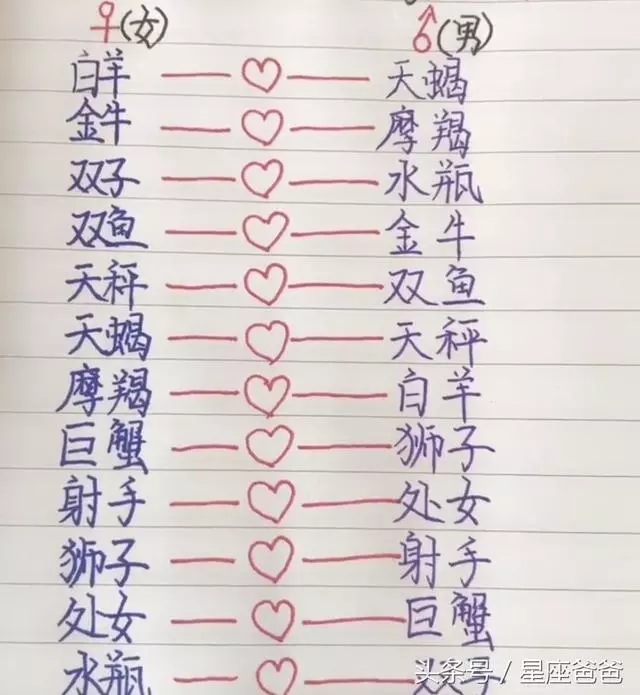 ♀(女) ♂(男)
白羊 天蝎
金牛 摩羯
双子 水瓶
双鱼 金牛
天秤 双鱼
天蝎 天秤
摩羯 白羊
巨蟹 狮子
射手 处女
狮子 射手
处女 巨蟹
水瓶
头条号 / 星座爸爸